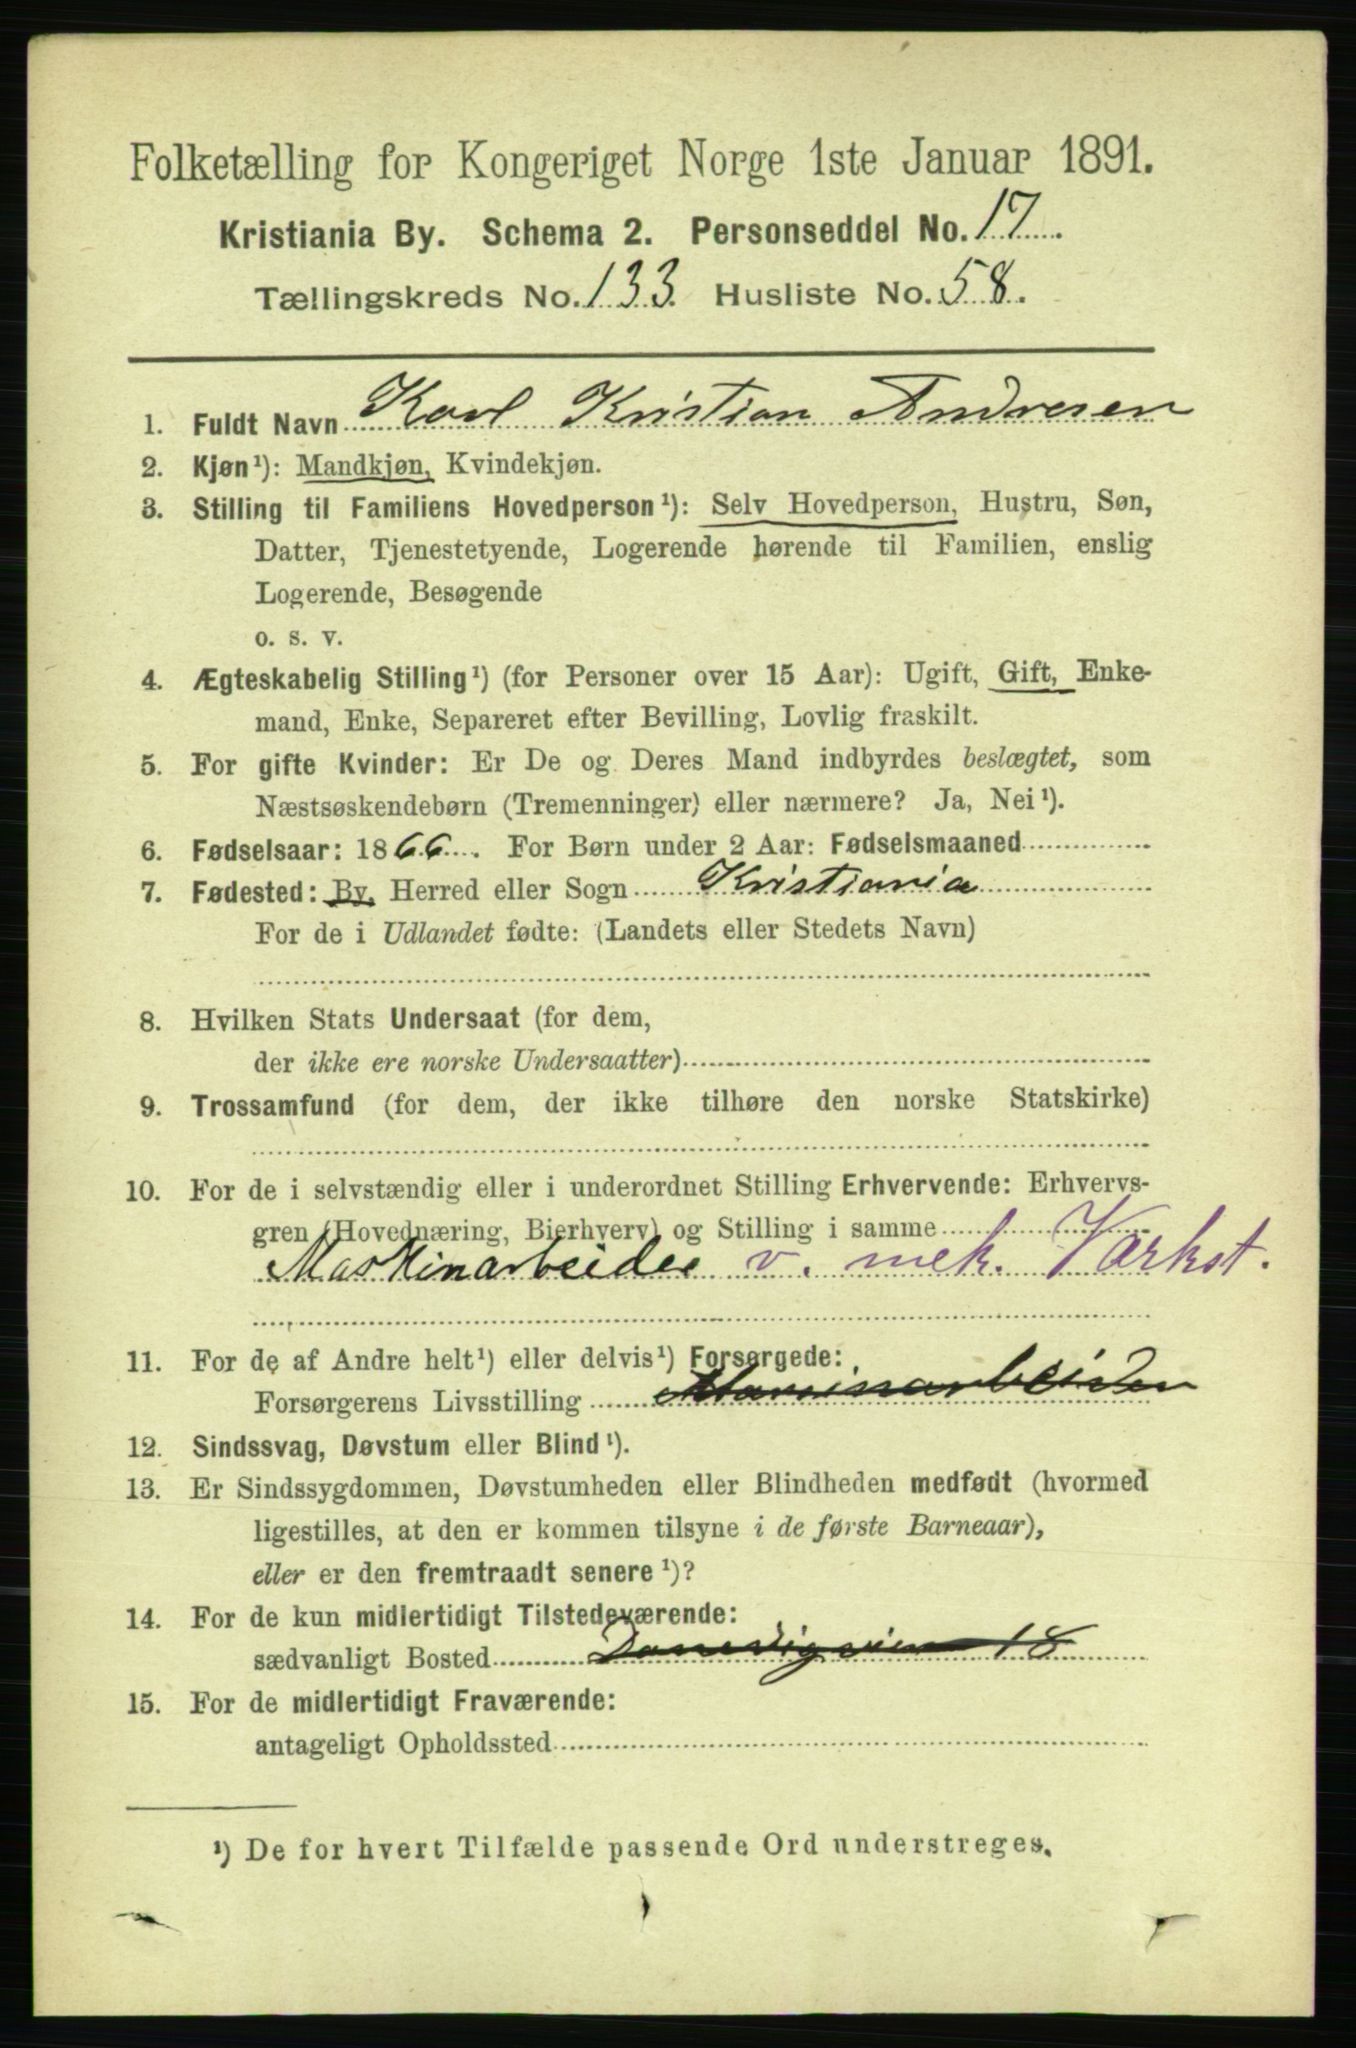 Folketælling for Kongeriget Norge 1ste Januar 1891.
Kristiania By. Schema 2. Personseddel No. 17.
Tællingskreds No. 133. Husliste No. 58.
1. Fuldt Navn Karl Kristian Andresen
2. Kjøn¹): Mandkjøn, Kvindekjøn.
3. Stilling til Familiens Hovedperson¹): Selv Hovedperson, Hustru, Søn,
Datter, Tjenestetyende, Logerende hørende til Familien, enslig
Logerende, Besøgende
o. s. v.
4. Ægteskabelig Stilling¹) (for Personer over 15 Aar): Ugift, Gift, Enke-
mand, Enke, Separeret efter Bevilling, Lovlig fraskilt.
5. For gifte Kvinder: Er De og Deres Mand indbyrdes beslægtet, som
Næstsøskendebørn (Tremenninger) eller nærmere? Ja, Nei¹).
6. Fødselsaar: 1866. For Børn under 2 Aar: Fødselsmaaned
7. Fødested: By, Herred eller Sogn Kristiania
For de i Udlandet fødte: (Landets eller Stedets Navn)
8. Hvilken Stats Undersaat (for dem,
der ikke ere norske Undersaatter)
9. Trossamfund (for dem, der ikke tilhøre den norske Statskirke)
10. For de i selvstændig eller i underordnet Stilling Erhvervende: Erhvervs-
gren (Hovednæring, Bierhverv) og Stilling i samme
Maskinarbeider v. mek. Værkst.
11. For de af Andre helt¹) eller delvis¹) Forsørgede:
Forsørgerens Livsstilling
12. Sindssvag, Døvstum eller Blind¹).
13. Er Sindssygdommen, Døvstumheden eller Blindheden medfødt (hvormed
ligestilles, at den er kommen tilsyne i de første Barneaar),
eller er den fremtraadt senere¹)?
14. For de kun midlertidigt Tilstedeværende:
sædvanligt Bosted 18
15. For de midlertidigt Fraværende:
antageligt Opholdssted
¹) De for hvert Tilfælde passende Ord understreges.